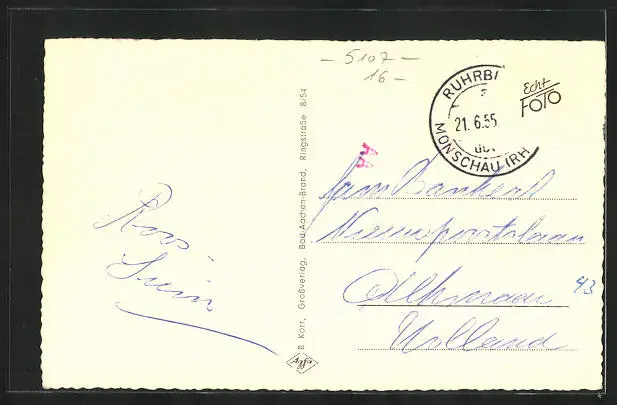 - 5107 -
16 -
RUHRB
21.6.55
üb.
MONSCHAU (RH
Echt
FOTO
AA
Fam Bankers
Nieuwpoortslaan
43
Alkmaar
Holland
B Korr, Großverlag, Bad-Aachen-Brand, Ringstraße 8/54
Agfa